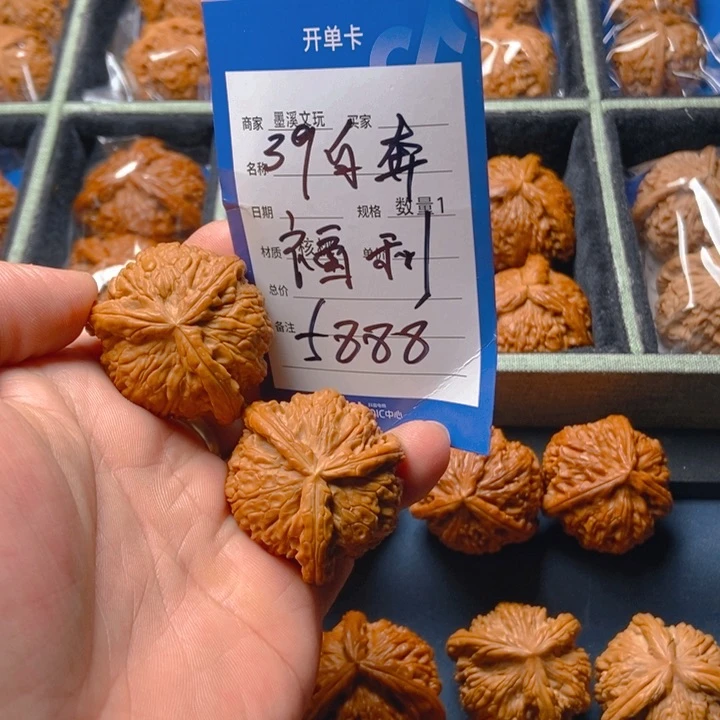 开单卡
商家 墨溪文玩 买家
名称 39白奔
日期 规格 数量1
材质 福利
总价
备注 5888
IC中心